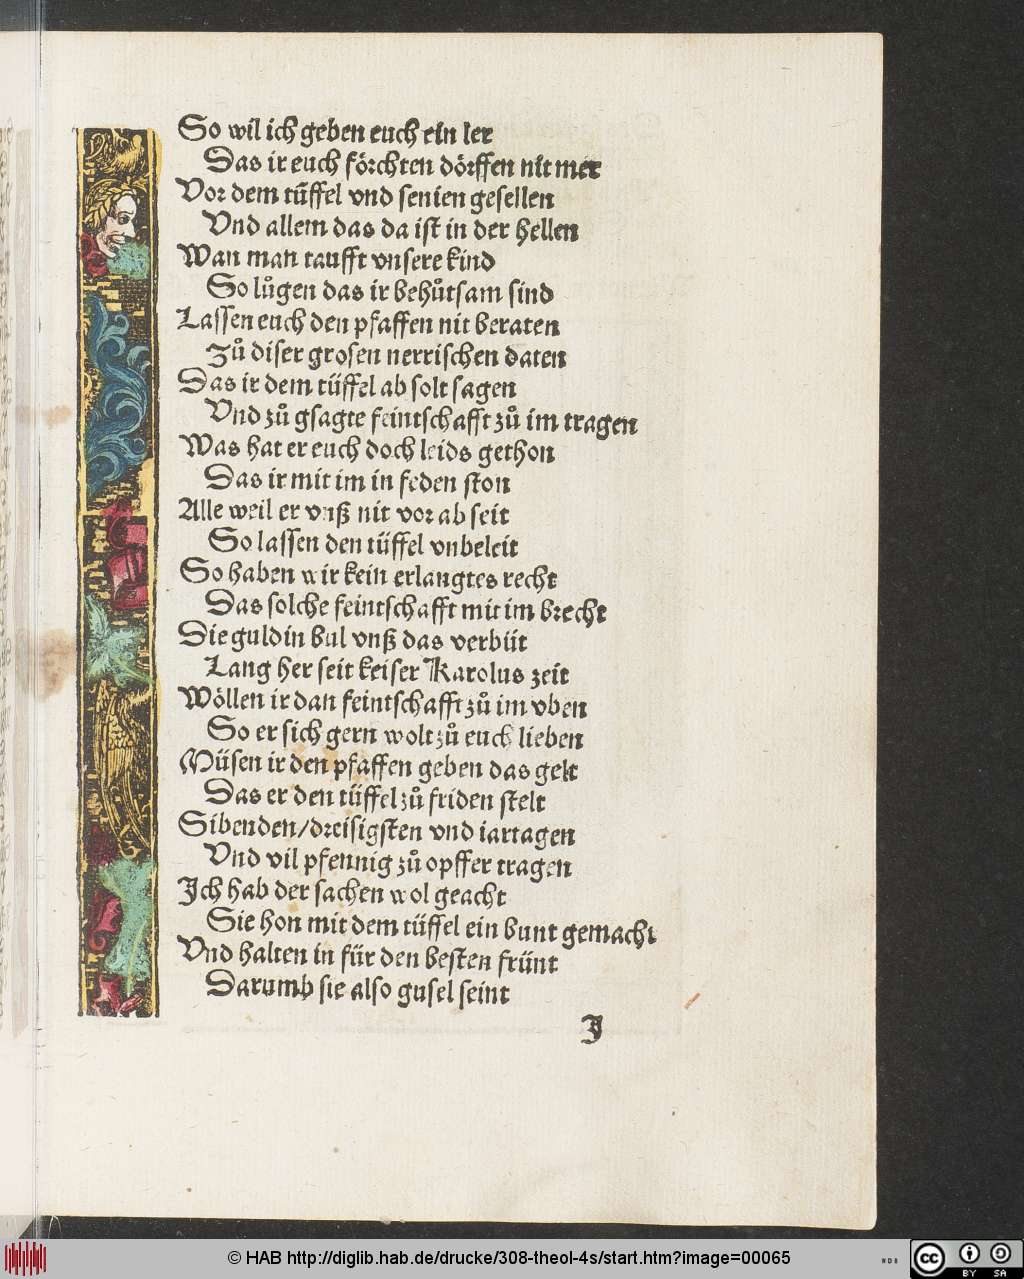 So wil ich geben euch ein ler
Das ir euch förchten dörffen nit mer
Vor dem tüffel vnd senien gesellen
Vnd allem das da ist in der hellen
Wan man taufft vnsere kind
So lůgen das ir behůtsam sind
Lassen euch den pfaffen nit beraten
Zů diser grosen nerrischen daten
Das ir dem tüffel ab solt sagen
Vnd zů gsagte feintschafft zů im tragen
Was hat er euch doch leids gethon
Das ir mit im in feden ston
Alle weil er vnß nit vor ab seit
So lassen den tüffel vnbeleit
So haben wir kein erlangtes recht
Das solche feintschafft mit im brecht
Die guldin bul vnß das verbüt
Lang her seit keiser Karolus zeit
Wöllen ir dan feintschafft zů im vben
So er sich gern wolt zů euch lieben
Müsen ir den pfaffen geben das gelt
Das er den tüffel zů friden stelt
Sibenden/dreisigsten vnd iartagen
Vnd vil pfennig zů opffer tragen
Ich hab der sachen wol geacht
Sie hon mit dem tüffel ein bunt gemacht
Vnd halten in für den besten frünt
Darumb sie also gusel seint
J
© HAB http://diglib.hab.de/drucke/308-theol-4s/start.htm?image=00065
WDB
cc BY SA